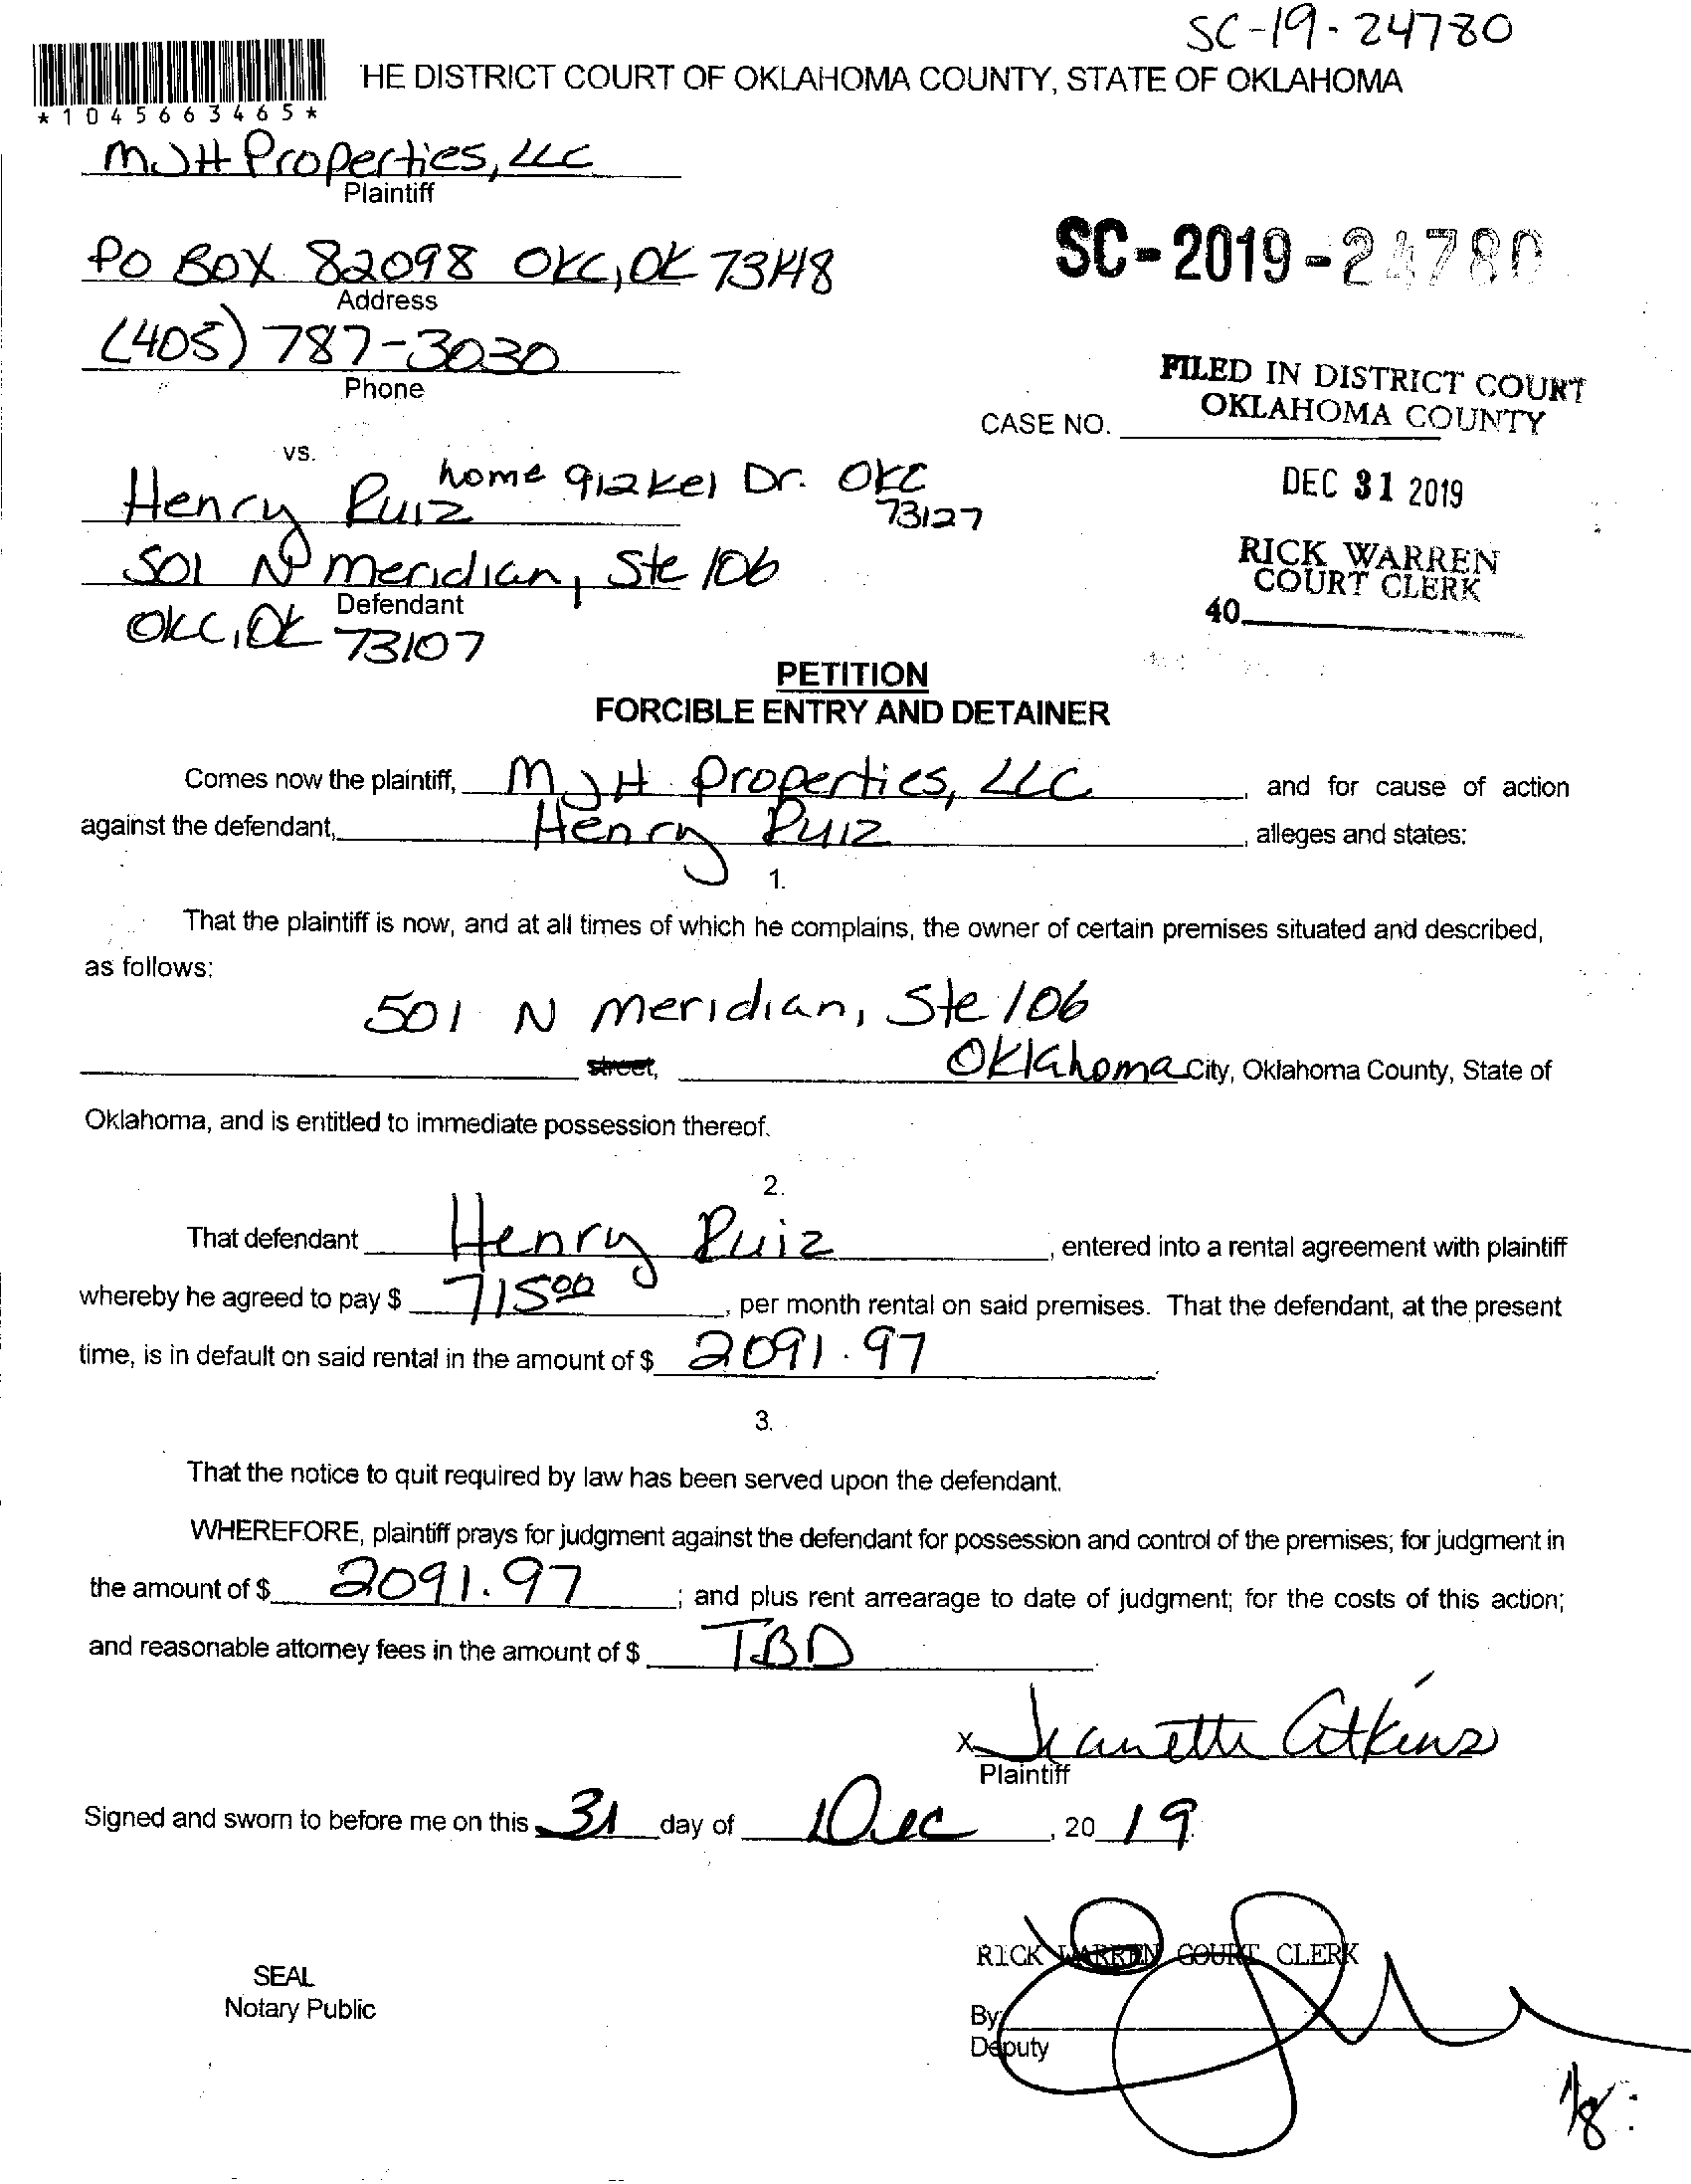 SC-19-24780
HE DISTRICT COURT OF OKLAHOMA COUNTY, STATE OF OKLAHOMA
*1045663465*
MJH Properties, LLC
Plaintiff
PO BOX 82098 OKC, OK 73148
SC-2019-24780
Address
(405) 787-3030
Phone
FILED IN DISTRICT COURT
OKLAHOMA COUNTY
CASE NO.
vs.
home 912 Kel Dr. OKC
73127
Henry Ruiz
DEC 31 2019
501 N Meridian, Ste 106
RICK WARREN
COURT CLERK
Defendant
40
OKC, OK 73107
PETITION
FORCIBLE ENTRY AND DETAINER
Comes now the plaintiff, MJH Properties, LLC, and for cause of action
against the defendant, Henry Ruiz, alleges and states:
1.
That the plaintiff is now, and at all times of which he complains, the owner of certain premises situated and described,
as follows:
501 N Meridian, Ste 106
street, Oklahoma City, Oklahoma County, State of
Oklahoma, and is entitled to immediate possession thereof.
2.
That defendant Henry Ruiz, entered into a rental agreement with plaintiff
whereby he agreed to pay $ 71500, per month rental on said premises. That the defendant, at the present
time, is in default on said rental in the amount of $ 2091.97.
3.
That the notice to quit required by law has been served upon the defendant.
WHEREFORE, plaintiff prays for judgment against the defendant for possession and control of the premises; for judgment in
the amount of $ 2091.97; and plus rent arrearage to date of judgment; for the costs of this action;
and reasonable attorney fees in the amount of $ TBD.
X Jeanette Atkins
Plaintiff
Signed and sworn to before me on this 31 day of Dec, 20 19.
RICK WARREN COURT CLERK
SEAL
Notary Public
By
Deputy